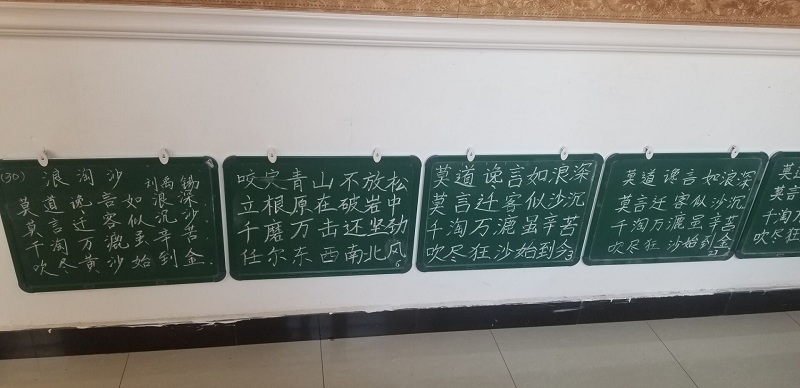 (30) 浪淘沙 刘禹锡
莫道谗言如浪深
莫言迁客似沉沙
千淘万漉虽辛苦
吹尽黄沙始到金
咬定青山不放松
立根原在破岩中
千磨万击还坚劲
任尔东西南北风
6
莫道谗言如浪深
莫言迁客似沙沉
千淘万漉虽辛苦
吹尽狂沙始到今
3
莫道谗言如浪深
莫言迁客似沙沉
千淘万漉虽辛苦
吹尽狂沙始到金
23
莫道
莫言
千淘万
吹尽狂